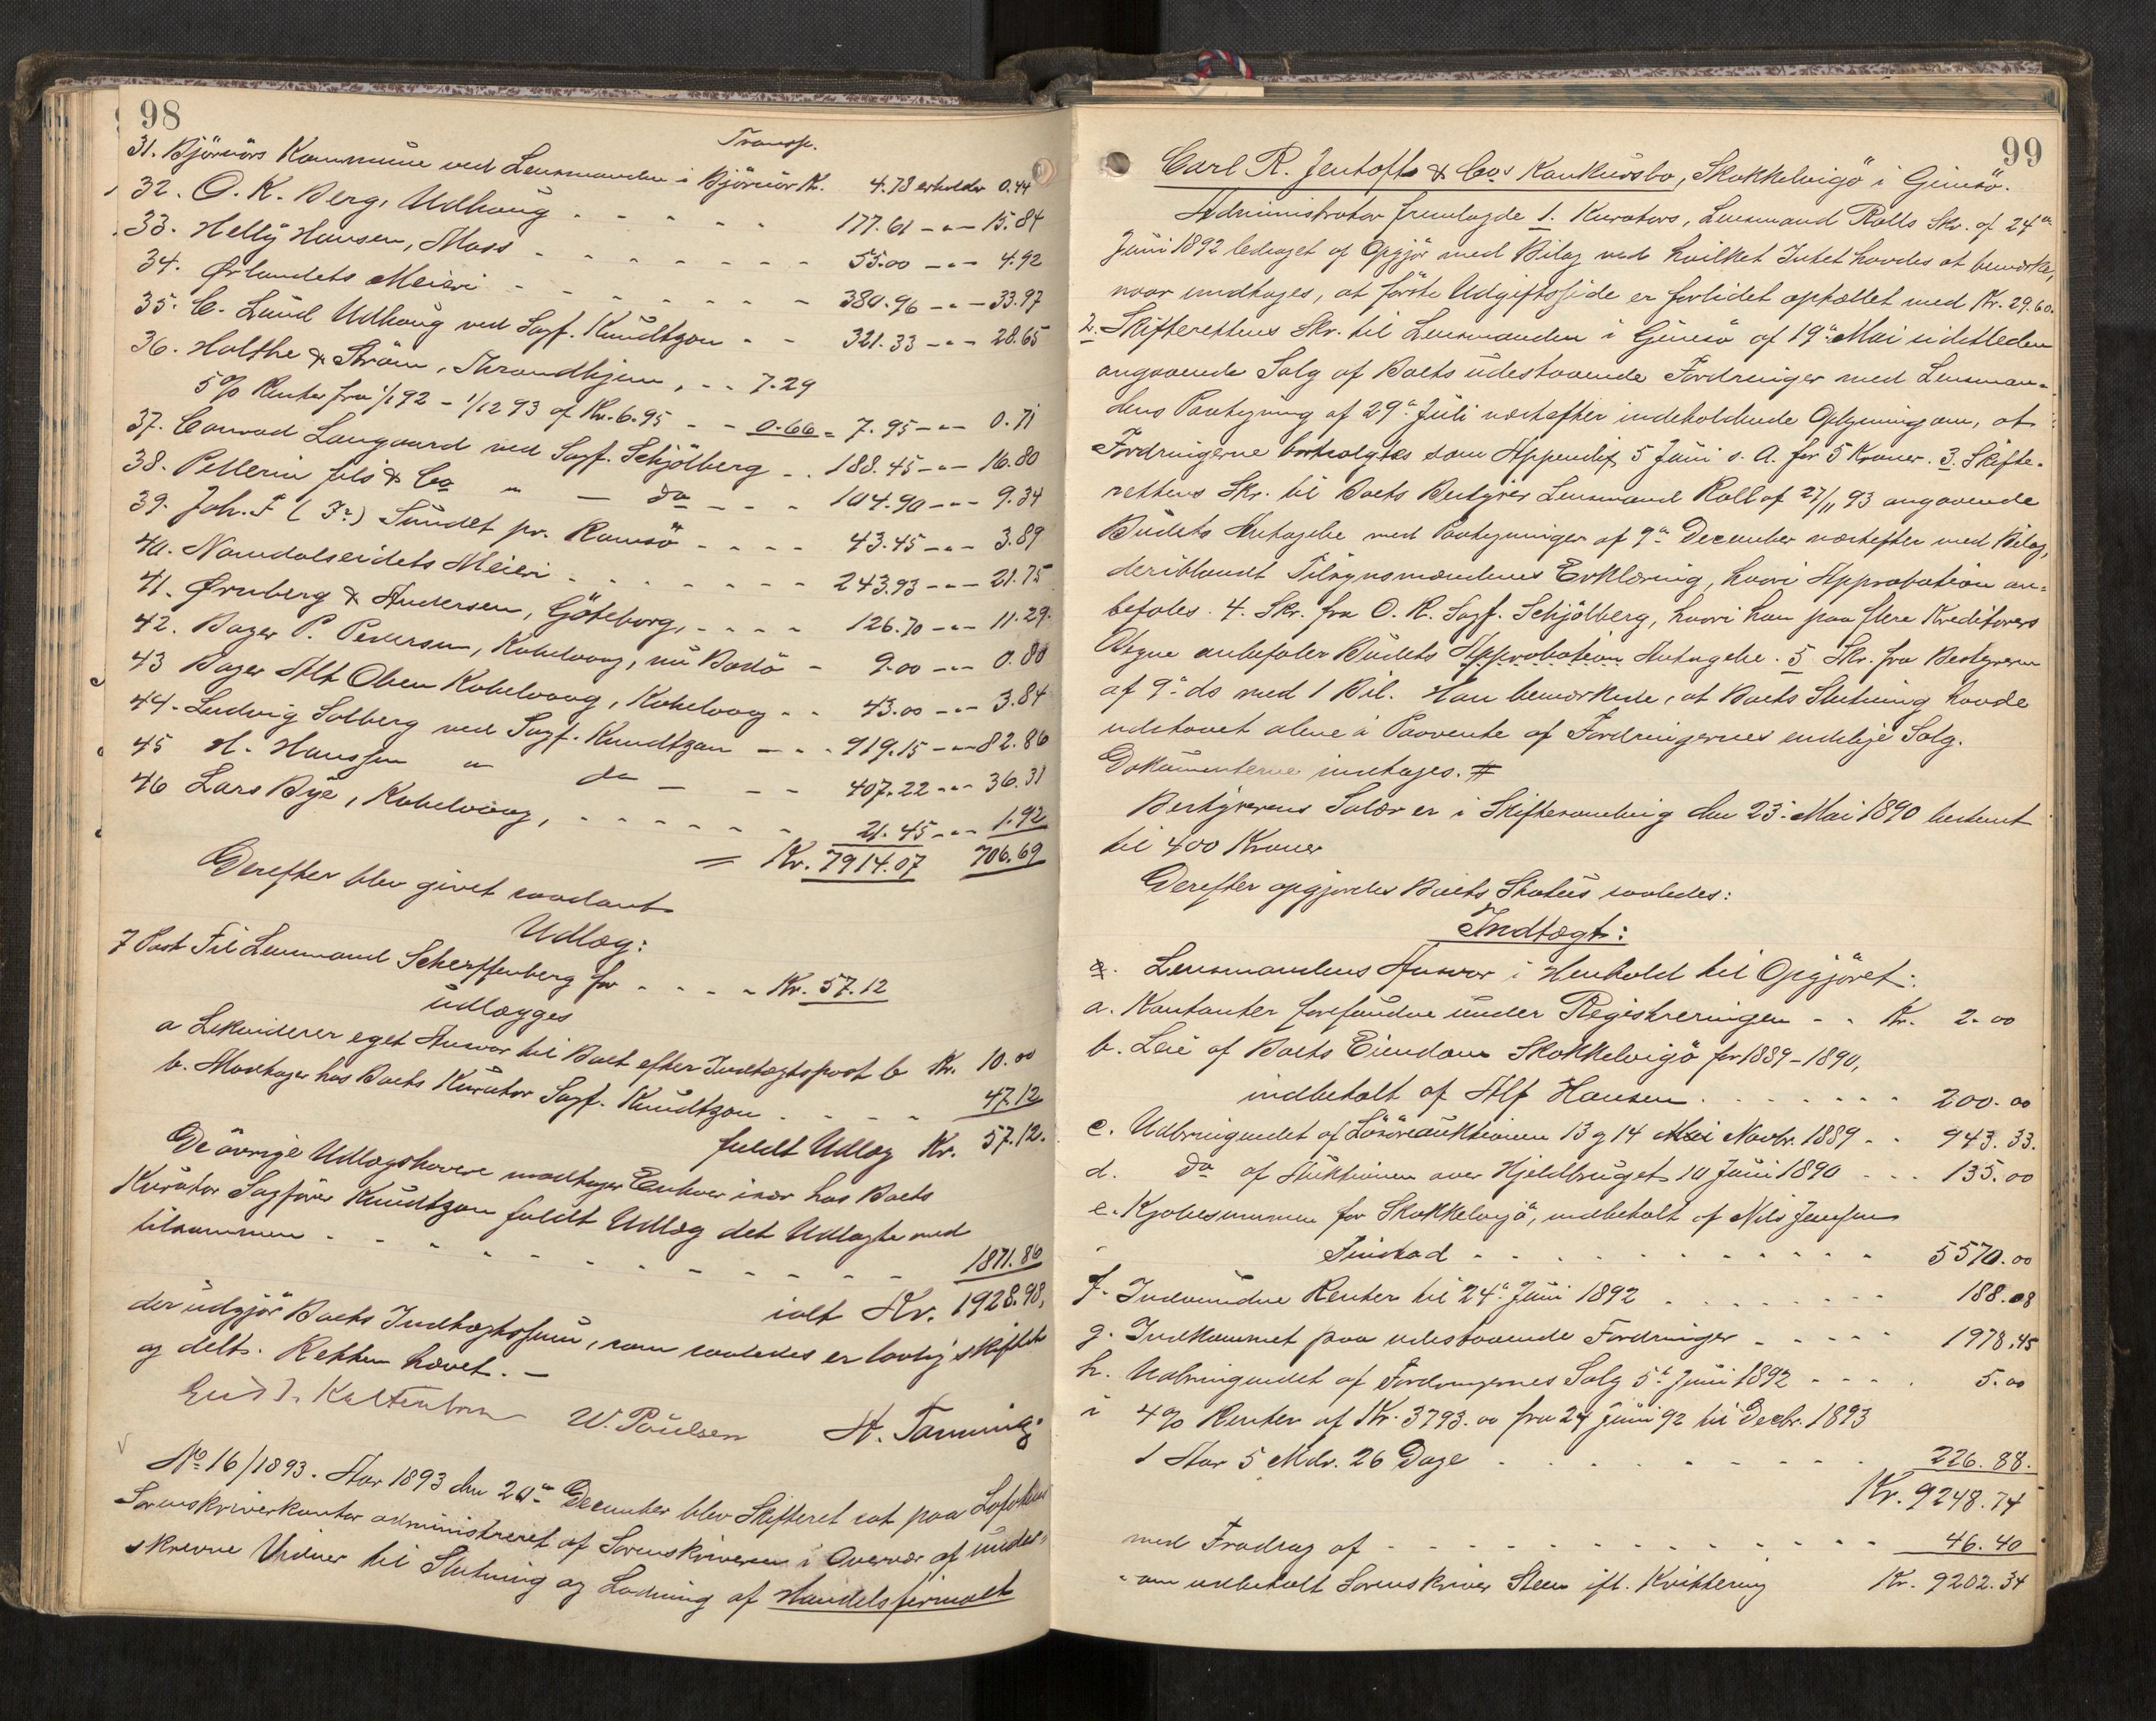 98
Transp.
31. Bjørnørs Kommune ved Lensmanden i Bjørnör Kr. 4.78 erholder 0.44
32. O. K. Berg, Udhaug - - - - - 177.61 - „ - 15.84
33. Helly Hansen, Moss - - - - - - - 55.00 - „ - 4.92
34. Ørlandets Meieri - - - - - - - 380.96 - „ - 33.97
35. C. Lund Udhaug ved Sagf. Knudtzon - - 321.33 - „ - 28.65
36. Holthe & Ström, Throndhjem, - - 7.29
5% Renter fra 1/1 92 - 1/12 93 af Kr. 6.95 - - 0.66 = 7.95 - „ - 0.71
37. Conrad Langaard ved Sagf. Schjölberg - - 188.45 - „ - 16.80
38. Pellerin fils & Co „ - do - - - 104.90 - „ - 9.34
39. Joh. F (J?) Sundet pr. Ramsö - - - - 43.45 - „ - 3.89
40. Namdalseidets Meieri - - - - - - - 243.93 - „ - 21.75
41. Ørnberg & Andersen, Göteborg, - - - - 126.70 - „ - 11.29.
42. Bager P. Pedersen, Kabelvaag, nu Bodö - 9.00 - „ - 0.80
43 Bager Alt Olsen Kabelvaag, Kabelvaag - - 43.00 - „ - 3.84
44. Ludvig Solberg ved Sagf. Knudtzon - - - 919.15 - „ - 82.86
45 H. Hanssen „ do - - - 407.22 - „ - 36.31
46 Lars Bye, Kabelvaag, - - - - - - - 21.45 - „ - 1.92
= Kr. 7914.07 706.69
Derefter blev givet saadant
Udlæg:
7 Post Til Lensmand Scherffenberg for - - - - Kr. 57.12
udlægges
a Likviderer eget Ansvar til Boet efter Indtægtspost b Kr. 10.00
b. Modtager hos Boets Kurator Sagf. Knudtzon - - - - 47.12
fuldt Udlæg Kr. 57.12.
De övrige Udlægshavere modtager Enhver især hos Boets
Kurator Sagförer Knudtzon fuldt Udlæg det Udlagte med
tilsammen - - - - - - - - - - - - 1871.86
ialt Kr. 1928.98,
der udgjör Boets Indtægtssum, som saaledes er lovlig skiftet
og delt. Retten hævet. -
W. Paulsen
No 16/1893. Aar 1893 den 20de December blev Skifteret sat paa Lofotens
Sorenskriverkontor administreret af Sorenskriveren i Overvær af under-
skrevne Vidner til Slutning og Lodning af Handelsfirmaet
99
Carl R. Jentoft & Cos Konkursbo, Skokkelvigö i Gimsö.
Administrator fremlagde 1. Kurators, Lensmand Rolls Skr. af 24de
Juni 1892 ledsaget af Opgjör med Bilag ved hvilket Intet havdes at bemærke,
naar undtages, at förste Udgiftsside er forlidet optællet med Kr. 29.60.
2. Skifterettens Skr. til Lensmanden i Gimsö af 19de Mai sidstleden
angaaende Salg af Boets udestaaende Fordringer med Lensman-
dens Paategning af 29de Juli næstefter indeholdende Oplysning om, at
Fordringerne bortsolgtes som Appendix 5 Juni s. A. for 5 Kroner. 3. Skifte-
rettens Skr. til Boets Bestyrer Lensmand Roll af 27/11 93 angaaende
Budets Antagelse med Paategninger af 9de December næstefter med Bilag,
deriblandt Tilsynsmændenes Erklæring, hvori Approbation an-
befales. 4. Skr. fra O. R. Sagf. Schjölberg, hvori han paa flere Kreditorers
Vegne anbefaler Budets Approbation Antagelse. 5 Skr. fra Bestyreren
af 9de ds med 1 Bil. Han bemærkede, at Boets Slutning havde
udstaaet alene i Paavente af Fordringernes endelige Salg.
Dokumenterne indtages. #
Bestyrerens Salær er i Skiftesamling den 23de Mai 1890 bestemt
til 400 Kroner
Derefter opgjordes Boets Status saaledes:
Indtægt:
Lensmandens Ansvar i Henhold til Opgjöret:
a. Kontanter forefundne under Registreringen - - Kr. 2.00
b. Leie af Boets Eiendom Skokkelvigö for 1889-1890,
indbetalt af Alf Hansen - - - - - - - 200.00
c. Udbringendet af Lösöreauktionen 13 og 14 Mai Novbr. 1889 - - 943.33.
d. do af Auktionen over Hjeldbruget 10 Juni 1890 - - - 135.00
e. Kjøbesummen for Skokkelvigö, indbetalt af Nils Jenssen
Finstad - - - - - - - - - - - - 5570.00
f. Indvundne Renter til 24de Juni 1892 - - - - - - - 188.08
g. Indkommet paa udestaaende Fordringer - - - - - 1978.45
h. Udbringendet af Fordringernes Salg 5te Juni 1892 - - - - 5.00
i 4% Renter af Kr. 3793.00 fra 24 Juni 92 til Decbr. 1893
1 Aar 5 Mdr. 26 Dage - - - - - - - - - 226.88.
Kr. 9248.74
med Fradrag af - - - - - - - - - - - - - 46.40
som udbetalt Sorenskriver Steen ifl. Kvittering Kr. 9202.34